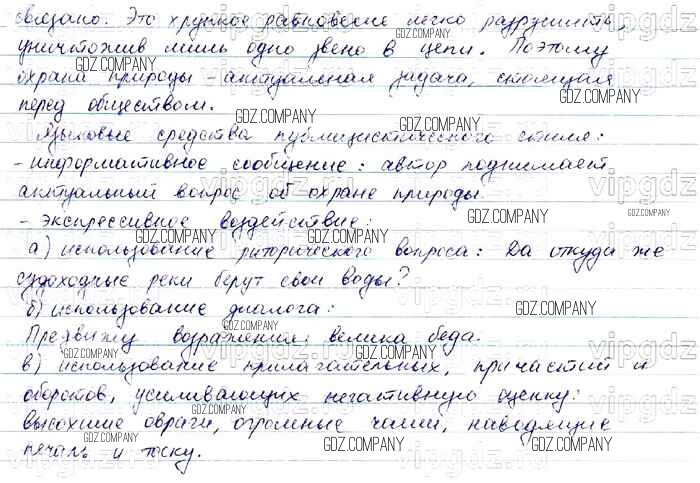 связано. Это хрупкое равновесие легко разрушить,
уничтожив лишь одно звено в цепи. Поэтому
охрана природы – актуальная задача, стоящая
перед обществом.
Языковые средства публицистического стиля:
- информативное сообщение: автор поднимает
актуальный вопрос об охране природы.
- экспрессивное воздействие:
а) использование риторического вопроса: Да откуда же
судоходные реки берут свои воды?
б) использование диалога:
Предвижу возражения: велика беда.
в) использование прилагательных, причастий и
оборотов, усиливающих негативную оценку:
высохшие овраги, огромные чаши, наводящие
печаль и тоску.
GDZ.COMPANY
vipgdz.ru